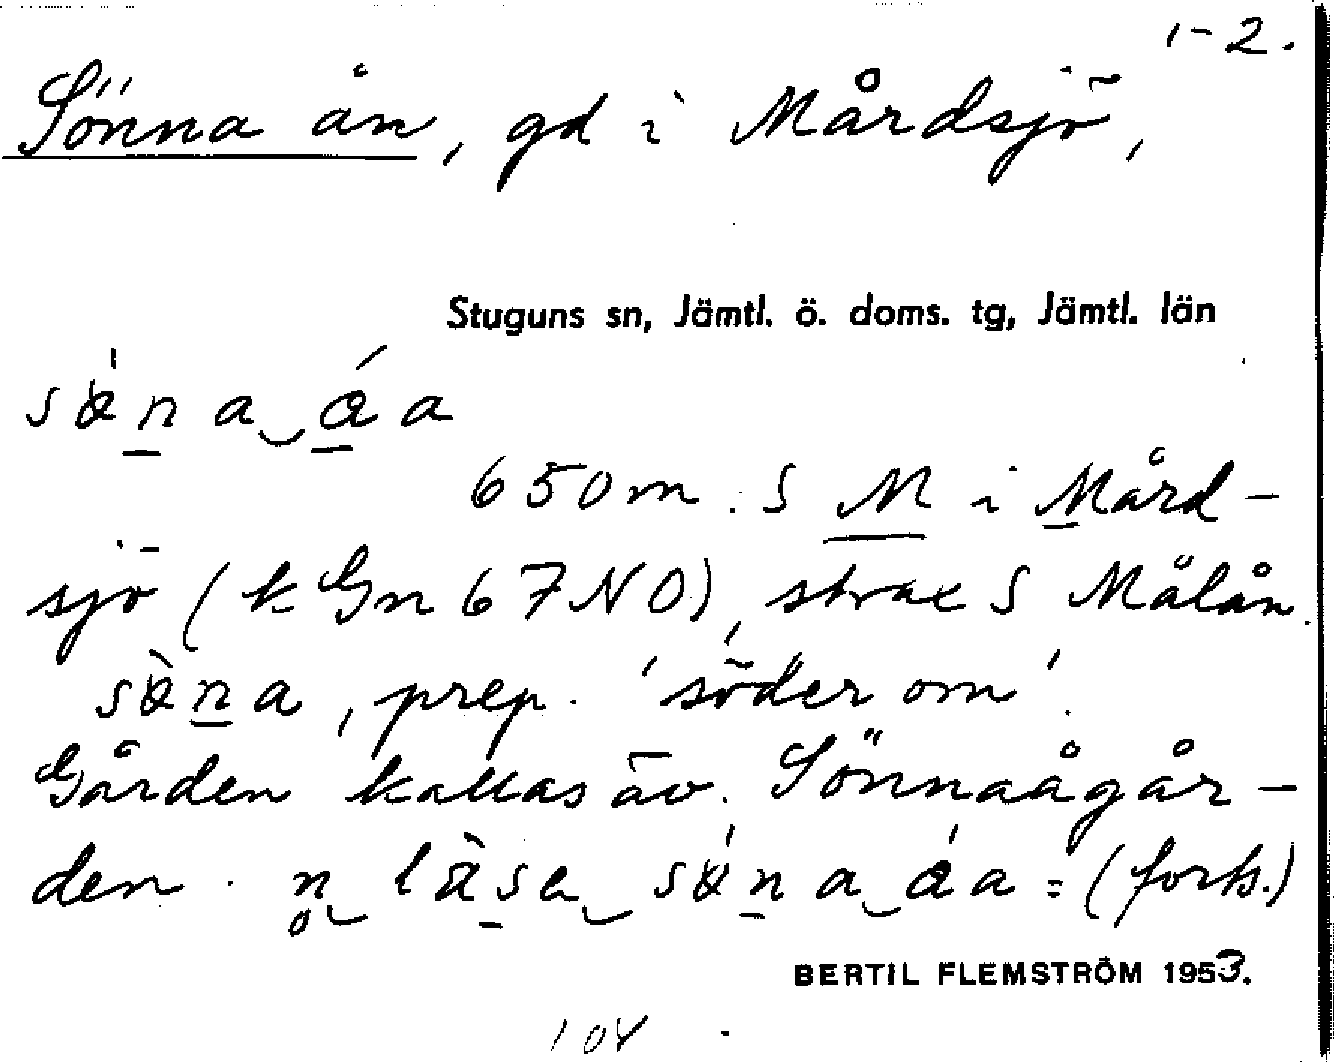 1-2.
Sönna ån, gd i Mårdsjö,
Stuguns sn, Jämtl. ö. doms. tg, Jämtl. län
650 m. S M i Mård-
sjö (k Gn 67 NO), strax S Mälån.
, prep. 'söder om'.
Gården kallas äv. Sönnaågår-
den. (forts.)
BERTIL FLEMSTRÖM 1953.